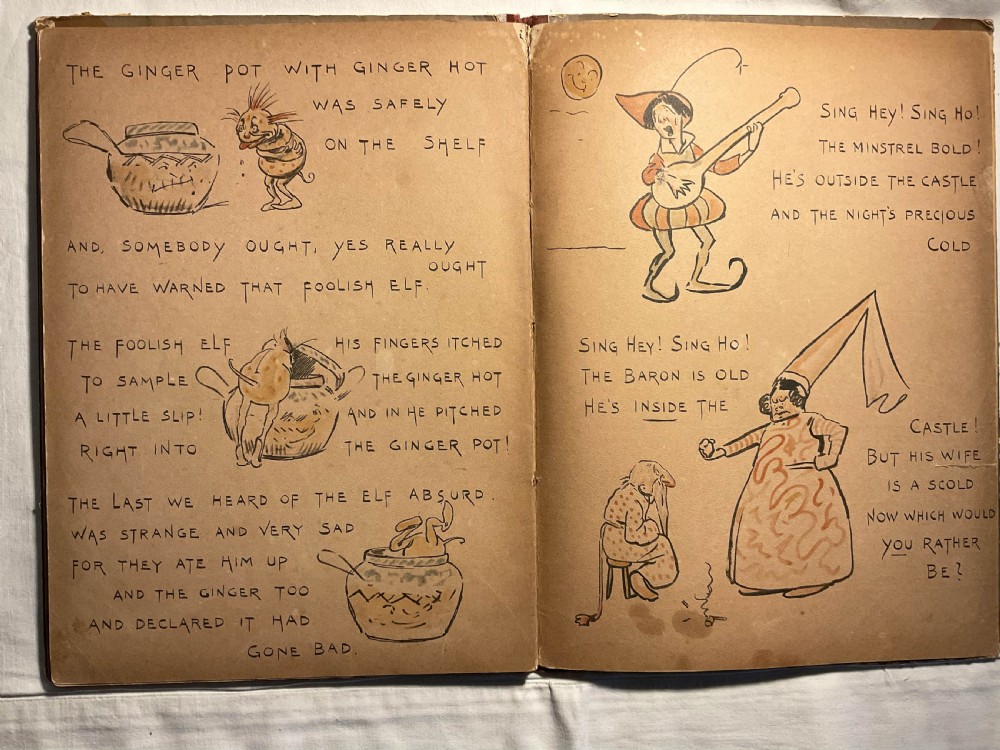 THE GINGER POT WITH GINGER HOT
WAS SAFELY
ON THE SHELF
AND, SOMEBODY OUGHT, YES REALLY
OUGHT
TO HAVE WARNED THAT FOOLISH ELF.
THE FOOLISH ELF HIS FINGERS ITCHED
TO SAMPLE THE GINGER HOT
A LITTLE SLIP! AND IN HE PITCHED
RIGHT INTO THE GINGER POT!
THE LAST WE HEARD OF THE ELF ABSURD.
WAS STRANGE AND VERY SAD
FOR THEY ATE HIM UP
AND THE GINGER TOO
AND DECLARED IT HAD
GONE BAD.
SING HEY! SING HO!
THE MINSTREL BOLD!
HE'S OUTSIDE THE CASTLE
AND THE NIGHT'S PRECIOUS
COLD
SING HEY! SING HO!
THE BARON IS OLD
HE'S INSIDE THE
CASTLE!
BUT HIS WIFE
IS A SCOLD
NOW WHICH WOULD
YOU RATHER
BE?